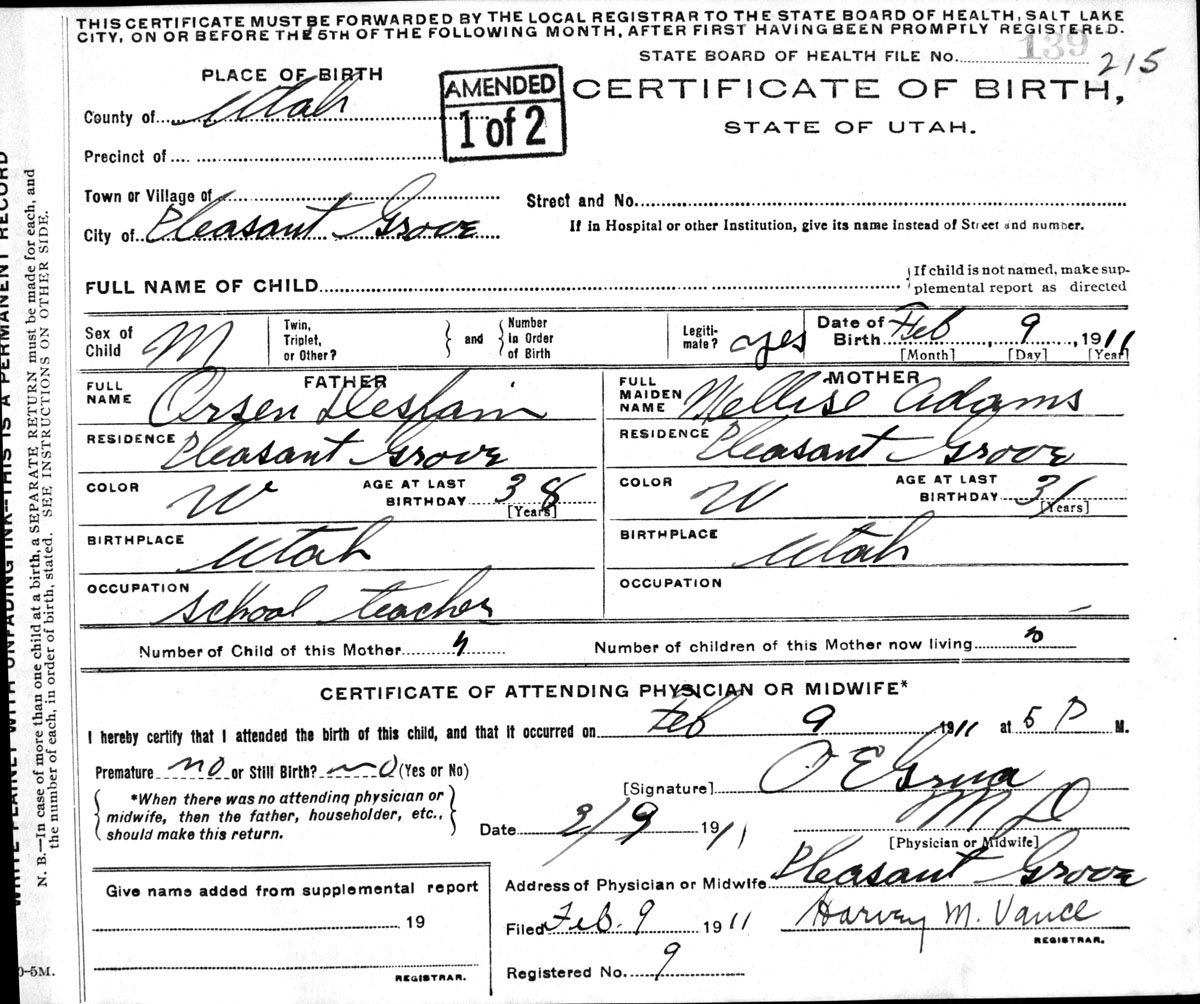 THIS CERTIFICATE MUST BE FORWARDED BY THE LOCAL REGISTRAR TO THE STATE BOARD OF HEALTH, SALT LAKE
CITY, ON OR BEFORE THE 5TH OF THE FOLLOWING MONTH, AFTER FIRST HAVING BEEN PROMPTLY REGISTERED.
STATE BOARD OF HEALTH FILE No. 139 215
PLACE OF BIRTH
AMENDED
1 of 2
CERTIFICATE OF BIRTH,
STATE OF UTAH.
County of Utah
Precinct of
Town or Village of
Street and No.
City of Pleasant Grove
If in Hospital or other Institution, give its name instead of Street and number.
FULL NAME OF CHILD
If child is not named, make sup-
plemental report as directed
Sex of Child M
Twin, Triplet, or Other? and Number In Order of Birth
Legiti-mate? yes
Date of Birth Feb 9, 1911
[Month] [Day] [Year]
FATHER
FULL NAME Orsen Despain
MOTHER
FULL MAIDEN NAME Nellise Adams
RESIDENCE Pleasant Grove
RESIDENCE Pleasant Grove
COLOR W AGE AT LAST BIRTHDAY 38 [Years]
COLOR W AGE AT LAST BIRTHDAY 31 [Years]
BIRTHPLACE Utah
BIRTHPLACE Utah
OCCUPATION School teacher
OCCUPATION –
Number of Child of this Mother
Number of children of this Mother now living
CERTIFICATE OF ATTENDING PHYSICIAN OR MIDWIFE*
I hereby certify that I attended the birth of this child, and that it occurred on Feb 9 1911 at 5 P M.
Premature no or Still Birth? no (Yes or No)
*When there was no attending physician or
midwife, then the father, householder, etc.,
should make this return.
[Signature] O E Grua
M D
Date 2/9 1911
[Physician or Midwife]
Give name added from supplemental report
19
REGISTRAR.
Address of Physician or Midwife Pleasant Grove
Filed Feb. 9 1911 Harvey M. Vance
REGISTRAR.
Registered No. 9
WRITE PLAINLY WITH UNFADING INK--THIS IS A PERMANENT RECORD
N. B.—In case of more than one child at a birth, a SEPARATE RETURN must be made for each, and
the number of each, in order of birth, stated. SEE INSTRUCTIONS ON OTHER SIDE.
0-5M.